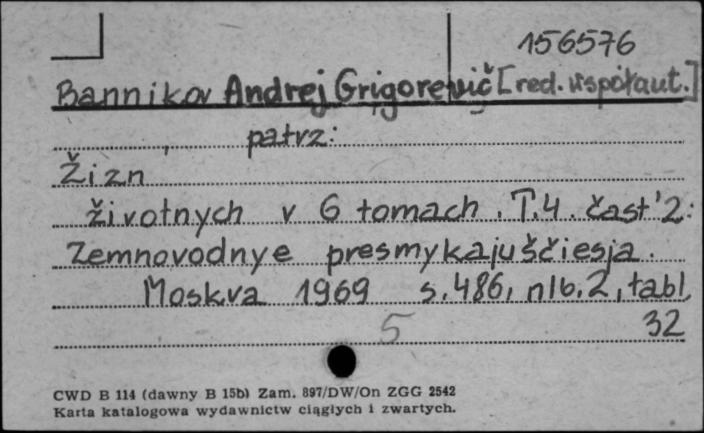 156576
Bannikov Andrej Grigorevič [red. współaut.]
patrz:
Žizn
životnych v 6 tomach. T.4. čast' 2:
Zemnovodnye presmykajuščiesja.
Moskva 1969 s.486, nlb.2, tabl.
32
5
CWD B 114 (dawny B 15b) Zam. 897/DW/On ZGG 2542
Karta katalogowa wydawnictw ciągłych i zwartych.